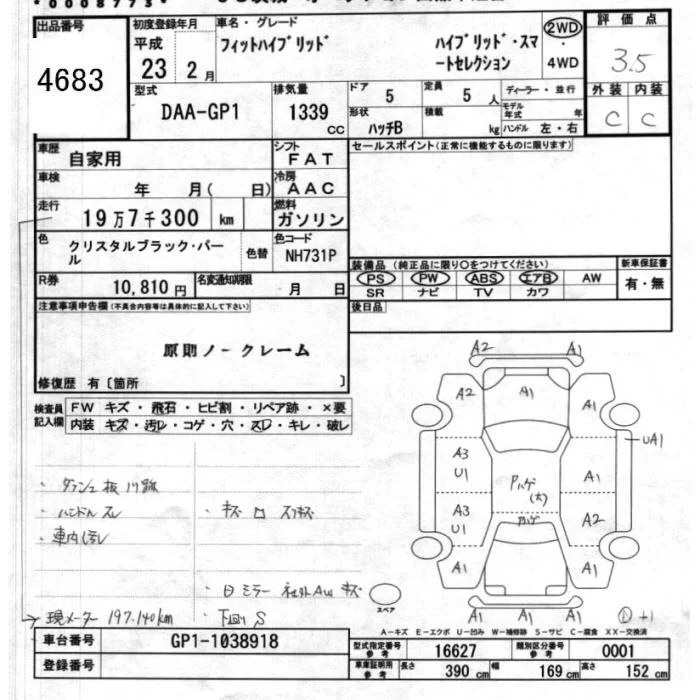 出品番号
4683
初度登録年月
平成
23 2月
車名・グレード
フィットハイブリッド
ハイブリッド・スマ
ートセレクション
2WD
・
4WD
評価点
3.5
外装 内装
C C
型式
DAA-GP1
排気量
1339
cc
ドア
5
定員
5人
形状
ハッチB
積載
kg
ディーラー・並行
モデル年式 年
ハンドル 左・右
車歴
自家用
シフト
FAT
車検
年 月( 日)
冷房
AAC
走行
19万7千300 km
燃料
ガソリン
色
クリスタルブラック・パー
ル
色替
色コード
NH731P
R券
10,810円
名変通知期限
月 日
セールスポイント(正常に機能するものに限ります)
装備品(純正品に限り○をつけてください)
PS PW ABS エアB AW
SR ナビ TV カワ
新車保証書
有・無
後日品
注意事項申告欄(不具合内容等は具体的に記入して下さい)
原則ノークレーム
修復歴 有〔箇所 〕
検査員
記入欄
FW キズ・飛石・ヒビ割・リペア跡・×要
内装 キズ・汚レ・コゲ・穴・スレ・キレ・破レ
・ハンドルスレ
・車内汚レ
・下回りS
現メーター 197.140km
A2 A1
A2 A1 A1
UA1
A3
U1
A1
Pハゲ
(大)
A3
U1
A2
ハゲ
A1 A1
A1 A1 A1
スペア
A-キズ E-エクボ U-凹み W-補修跡 S-サビ C-腐食 XX-交換済
車台番号
GP1-1038918
登録番号
型式指定番号
参考
16627
類別区分番号
参考
0001
車庫証明用
参考
長さ
390 cm
幅
169 cm
高さ
152 cm